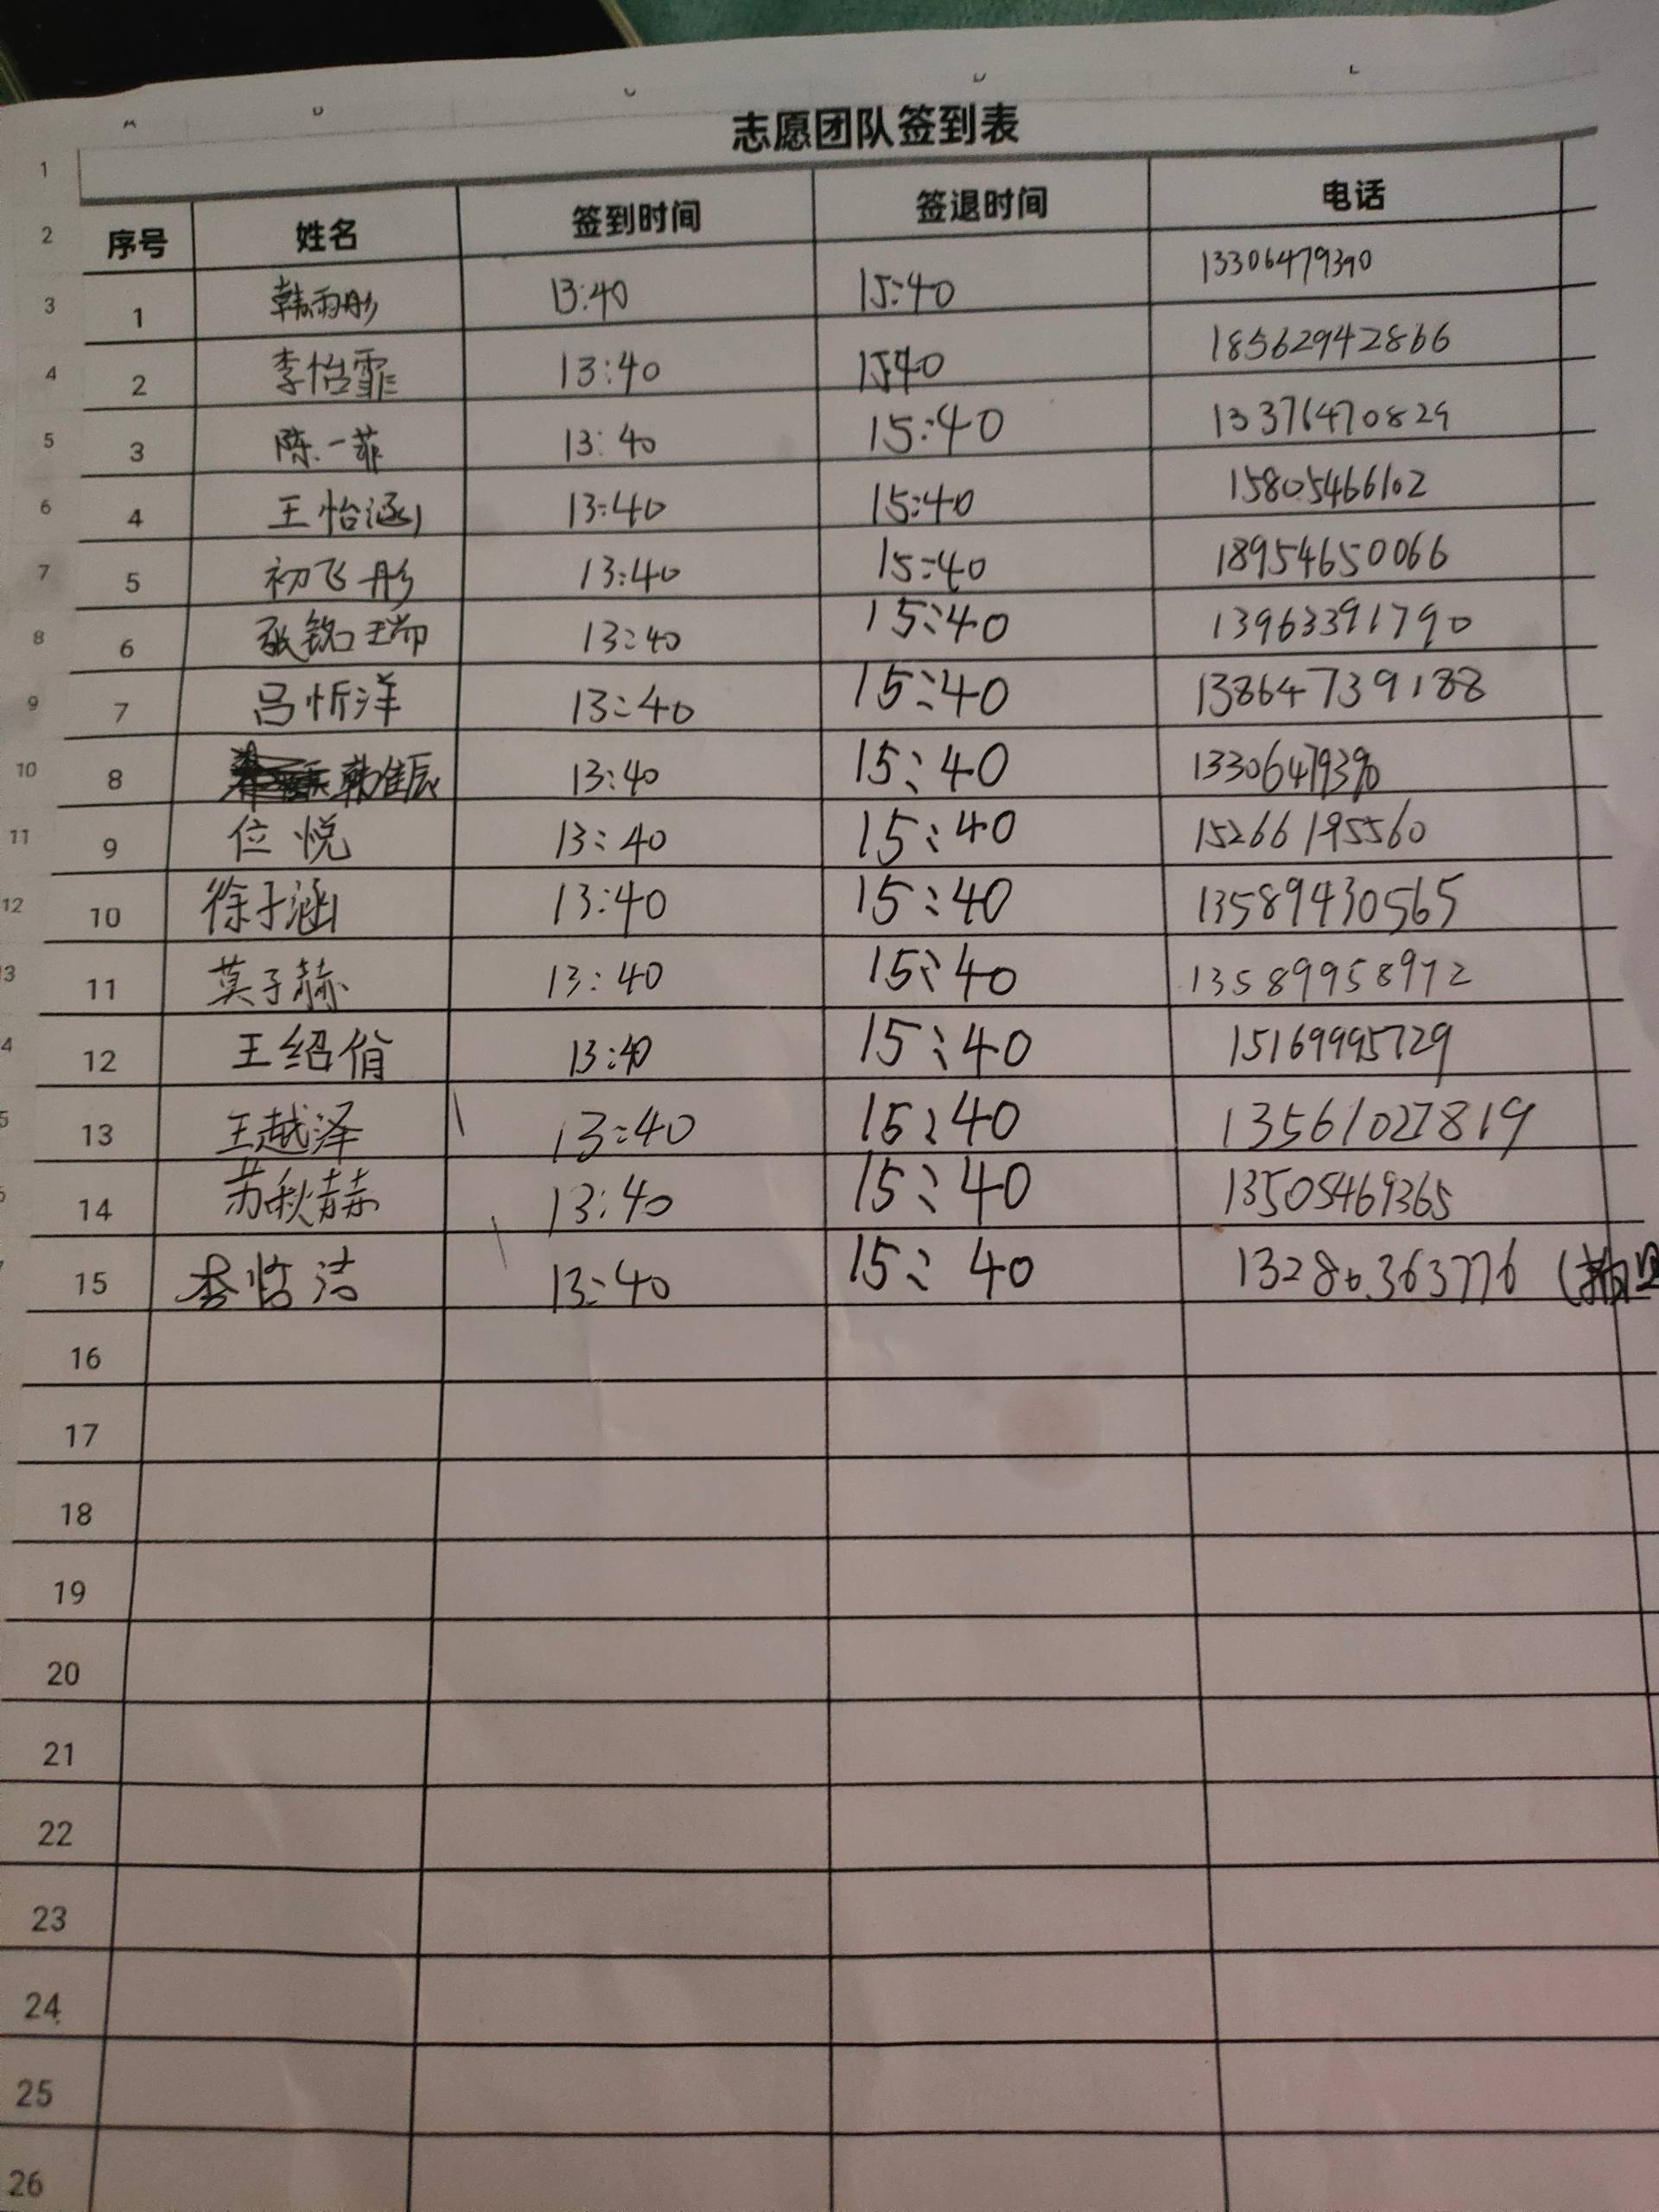 志愿团队签到表
1
2 序号 姓名 签到时间 签退时间 电话
3 1 韩雨彤 13:40 15:40 13306479390
4 2 李怡霏 13:40 15:40 18562942866
5 3 陈一菲 13:40 15:40 13376470829
6 4 王怡涵 13:40 15:40 15805466102
7 5 初飞彤 13:40 15:40 18954650066
8 6 张铭瑞 13:40 15:40 13963391790
9 7 吕忻洋 13:40 15:40 13864739188
10 8 韩佳辰 13:40 15:40 13306479390
11 9 位悦 13:40 15:40 15266195560
12 10 徐子涵 13:40 15:40 13589430565
3 11 莫子赫 13:40 15:40 13589958972
4 12 王绍俏 13:40 15:40 15169995729
5 13 王越泽 13:40 15:40 13561027819
14 苏秋赫 13:40 15:40 13505469365
15 李 洁 13:40 15:40 13280363776
16
17
18
19
20
21
22
23
24
25
26